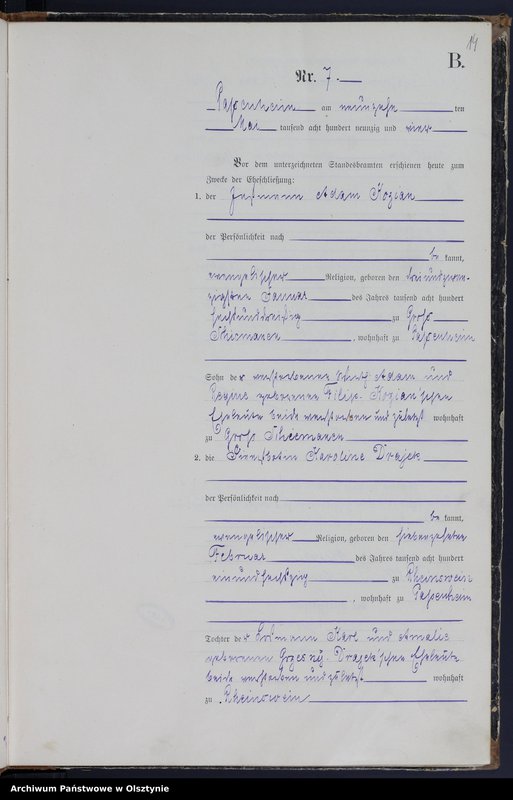 14
B.
Nr. 7.
Passenheim am neunzehn ten
Mai tausend acht hundert neunzig und vier
Vor dem unterzeichneten Standesbeamten erschienen heute zum
Zwecke der Eheschließung:
1. der Adam Kozian
der Persönlichkeit nach
be kannt,
evangelischer Religion, geboren den dreiundzwan-
zigsten Januar des Jahres tausend acht hundert
zu Groß
, wohnhaft zu Passenheim
Sohn der verstorbenen Adam und
Regine geborenen Kozian'schen
Eheleute beide verstorben und zuletzt wohnhaft
zu Groß
2. die Karoline Drajek
der Persönlichkeit nach
be kannt,
evangelischer Religion, geboren den siebenzehnten
Februar des Jahres tausend acht hundert
einundsechszig zu Rheinswein
, wohnhaft zu Passenheim
Tochter der Karl und Amalie
geborenen Drajek'schen Eheleute
beide verstorben und zuletzt wohnhaft
zu Rheinswein
Archiwum Państwowe w Olsztynie